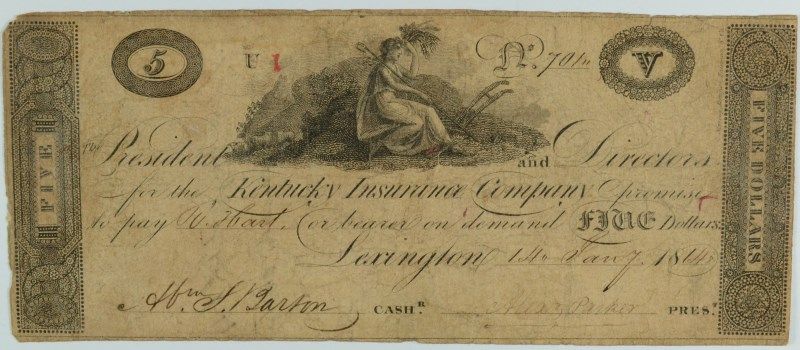 5 U I Nº 7010 V
FIVE
The President and Directors
for the Kentucky Insurance Company promise
to pay N. Hart, or bearer on demand FIVE Dollars.
Lexington 1st Jany. 1814
Abm. S. Barton CASHR. Alexr Parker PREST.
FIVE DOLLARS